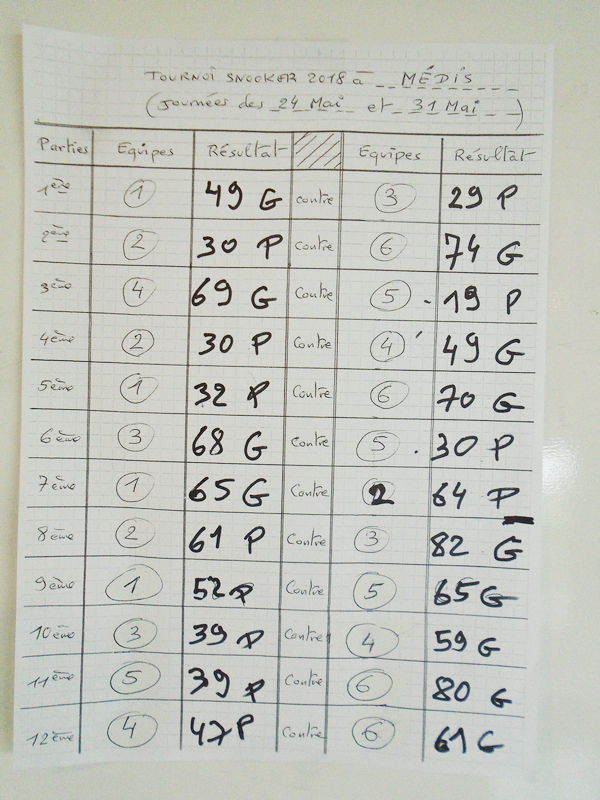 TOURNOI SNOOKER 2018 à MÉDIS
(Journées des 24 Mai et 31 Mai)
Parties Equipes Résultat Equipes Résultat
1ère 1 49 G contre 3 29 P
2ème 2 30 P contre 6 74 G
3ème 4 69 G Contre 5 19 P
4ème 2 30 P Contre 4 49 G
5ème 1 32 P Contre 6 70 G
6ème 3 68 G Contre 5 30 P
7ème 1 65 G Contre 2 64 P
8ème 2 61 P Contre 3 82 G
9ème 1 52 P Contre 5 65 G
10ème 3 39 P Contre 4 59 G
11ème 5 39 P Contre 6 80 G
12ème 4 47 P Contre 6 61 G